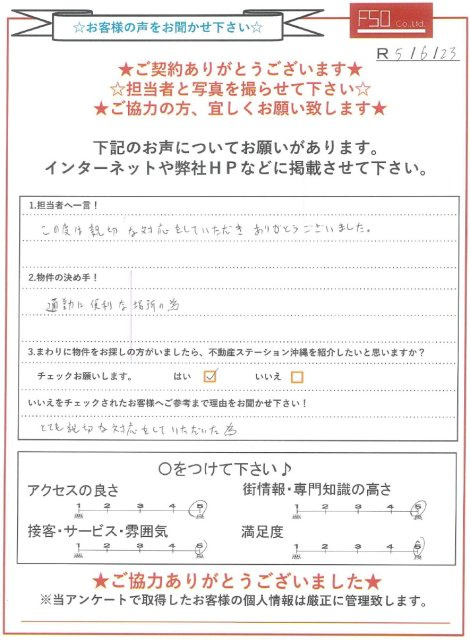 ☆お客様の声をお聞かせ下さい☆
FSO Co.,Ltd.
R 5/6/23
★ご契約ありがとうございます★
☆担当者と写真を撮らせて下さい☆
★ご協力の方、宜しくお願い致します★
下記のお声についてお願いがあります。
インターネットや弊社HPなどに掲載させて下さい。
1.担当者へ一言！
この度は親切な対応をしていただき ありがとうございました。
2.物件の決め手！
通勤に便利な場所の為
3.まわりに物件をお探しの方がいましたら、不動産ステーション沖縄を紹介したいと思いますか？
チェックお願いします。 はい ☑ いいえ □
いいえをチェックされたお客様へご参考まで理由をお聞かせ下さい！
とても親切な対応をしていただいた為
〇をつけて下さい♪
アクセスの良さ 街情報・専門知識の高さ
1 2 3 4 5 1 2 3 4 5
接客・サービス・雰囲気 満足度
1 2 3 4 5 1 2 3 4 5
★ご協力ありがとうございました★
※当アンケートで取得したお客様の個人情報は厳正に管理致します。